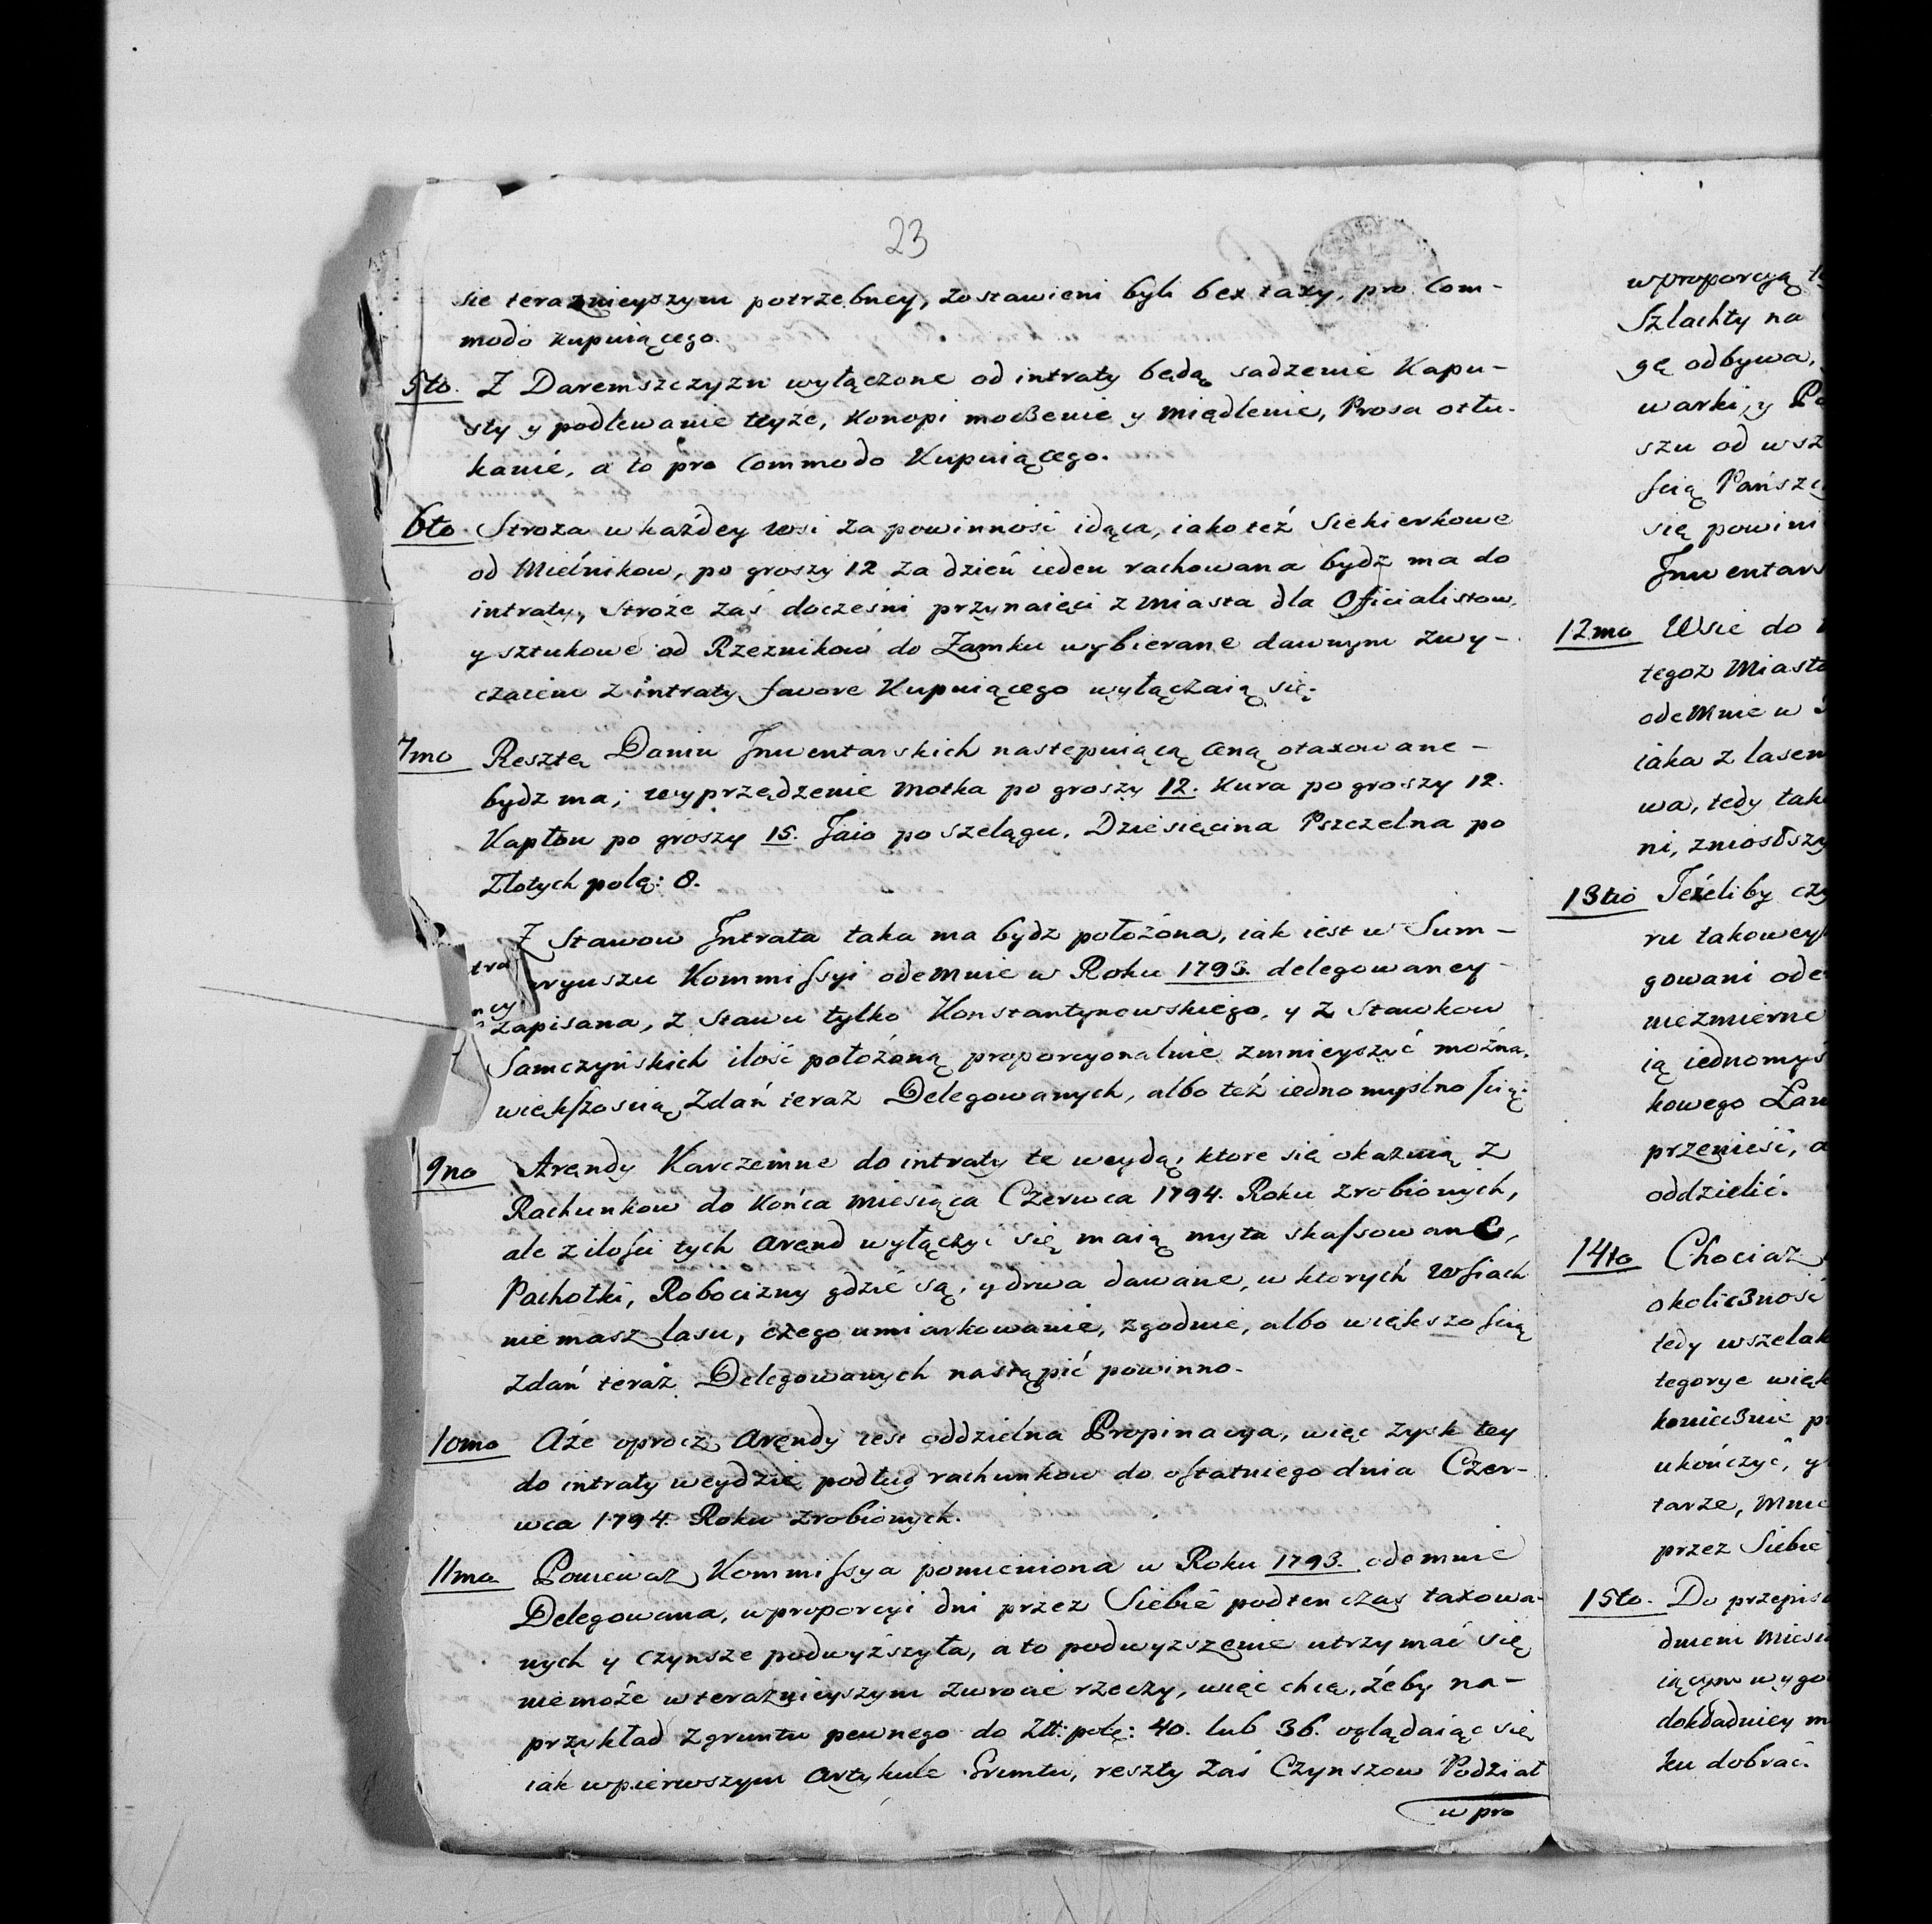 23
sie teraznieyszym potrzebney, zostawieni byli bex taxy, pro Com-
modo kupuiącego.
5to. Z Daremszczyzn wyłączone od intraty będą sadzenie Kapu-
sty y podlewanie teyże, Konopi moczenie y miądlenie, Prosa otłu-
kanie, a to pro Commodo Kupuiącego.
6to. Stroża w każdey wsi za powinność idąca, iako też Siekierkowe
od Mielnikow, po groszy 12 za dzień ieden rachowana bydz ma do
intraty, Stroże zaś docześni przynaięci z Miasta dla Oficialistow,
y sztukowe od Rzeznikow do Zamku wybierane dawnym zwy-
czaiem z intraty favore Kupuiącego wyłączaią się.
7mo Resztę Daniu Inwentarskich następuiącą ceną otaxowane-
bydz ma; wyprzędzenie motka po groszy 12. Kura po groszy 12.
Kapłon po groszy 15. Jaio po szelągu. Dziesięcina Pszczelna po
Złotych polą: 8.
Z Stawow Intrata taka ma bydz położona, iak iest w Sum-
aryuszu Kommissyi odemnie w Roku 1793. delegowaney
zapisana, z stawu tylko Konstantynowskiego, y z Stawkow
Samczyńskich ilość położoną proporcyonalnie zmnieyszyć można,
większością Zdań teraz Delegowanych, albo też iednomyślnością.
9no Arendy Karczemne do intraty te weydą, ktore się okazuią z
Rachunkow do Końca Miesiąca Czerwca 1794. Roku zrobionych,
ale z ilości tych Arend wyłączyć się maią myta skassowane,
Pachołki, Robocizny gdzie są, y drwa dawane, w ktorych Wsiach
niemasz lasu, czego umiarkowanie, zgodnie, albo większością
Zdań teraz Delegowanych nastąpić powinno.
10mo Aże oprocz Arendy iest oddzielna Propinacya, więc zysk tey
do intraty weydzie podług rachunkow do ostatniego dnia Czer-
wca 1794. Roku zrobionych.
11mo Ponieważ Kommissya pomieniona w Roku 1793. odemnie
Delegowana, w proporcyi dni przez Siebie podtenczas taxowa-
nych y czynsze podwyższyła, a to podwyzszenie utrzymać się
niemoże w teraznieyszym zwrocie rzeczy, więc chcę, żeby na-
przykład z gruntu pewnego do Złł: polę: 40. lub 36. oglądaiąc się
iak w pierwszym Artykule Gruntu, reszty zaś Czynszow Podział
w pro
w proporcyą
Szlachty na
gę odbywa,
warki, y
szu od
ścią
się powin
Inwentars
12mo Wsie do
tegoz Miasta
odemnie w
iaka z lasem
wa, tedy tak
ni, zniosłszy
13tio Jeżeliby
ru takowey
gowani ode
niezmierne
ią iednomyś
kowego
przenieść, a
oddzielić.
14to Chociaz
okoliczność
tedy wszelak
tegorye więk
koniecznie
ukończyć, y
tarze, Mnie
przez Siebie
15to. Do przepis
dniem
iącym
dokładniey m
ku dobrać.